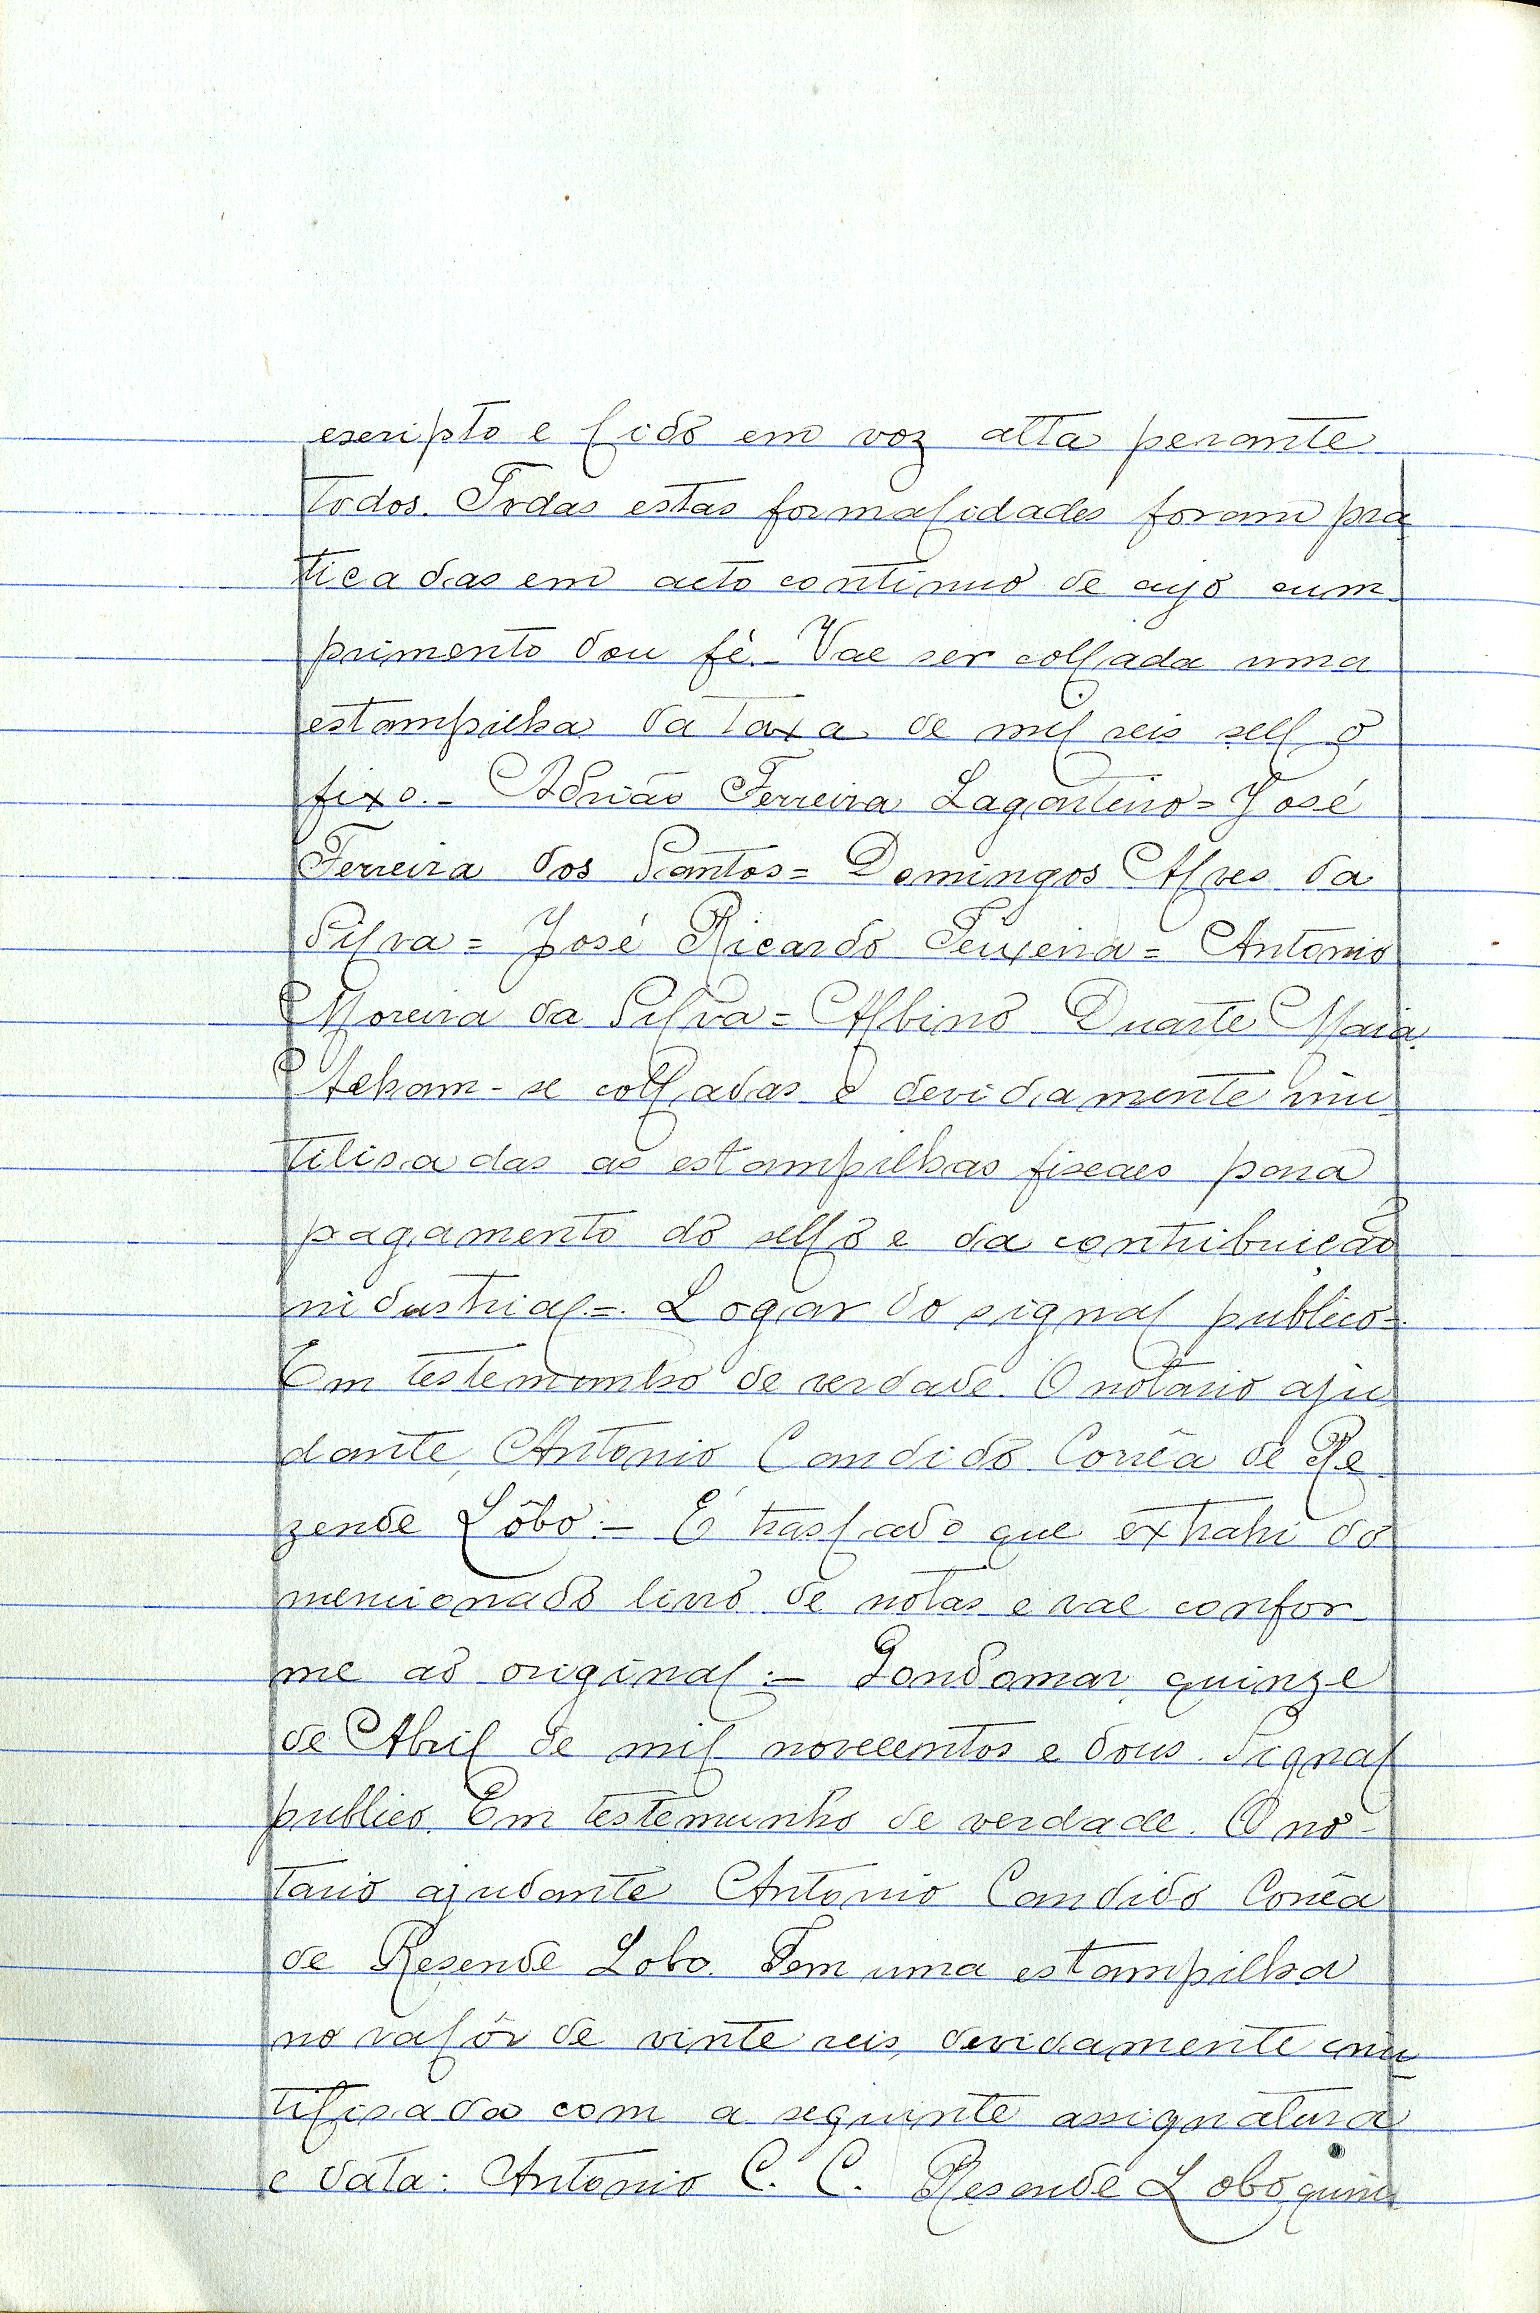 escripto e lido em voz alta perante
todos. Todas estas formalidades foram pra
ticadas em acto continuo de cujo cum-
primento dou fé.- Vae ser collada uma
estampilha da taxa de mil reis sello
fixo.- Adrião Ferreira Lagarteiro= José
Ferreira dos Santos= Domingos Alves da
Silva= José Ricardo Teixeira= Antonio
Moreira da Silva= Albino Duarte Maia.
Acham-se colladas e devidamente inu-
tilisadas as estampilhas fiscaes para
pagamento do sello e da contribuição
industrial=. Logar do signal publico=.
Em testemunho de verdade. O notario aju
dante, Antonio Candido Corrêa de Re-
zende Lôbo:- É traslado que extrahi do
mencionado livro de notas e vae confor-
me ao original:- Gondomar, quinze
de Abril de mil novecentos e dous. Signal
publico. Em testemunho de verdade. O no-
tario ajudante Antonio Candido Corrêa
de Resende Lobo. Tem uma estampilha
no valôr de vinte reis, devidamente inu-
tilisada com a seguinte assignatura
e data: Antonio C. C. Resende Lobo, quin